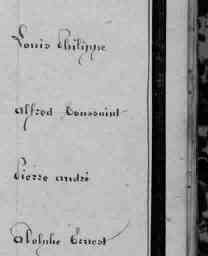 Louis Philippe
Alfred Toussaint
Pierre andré
Adolphe Ernest